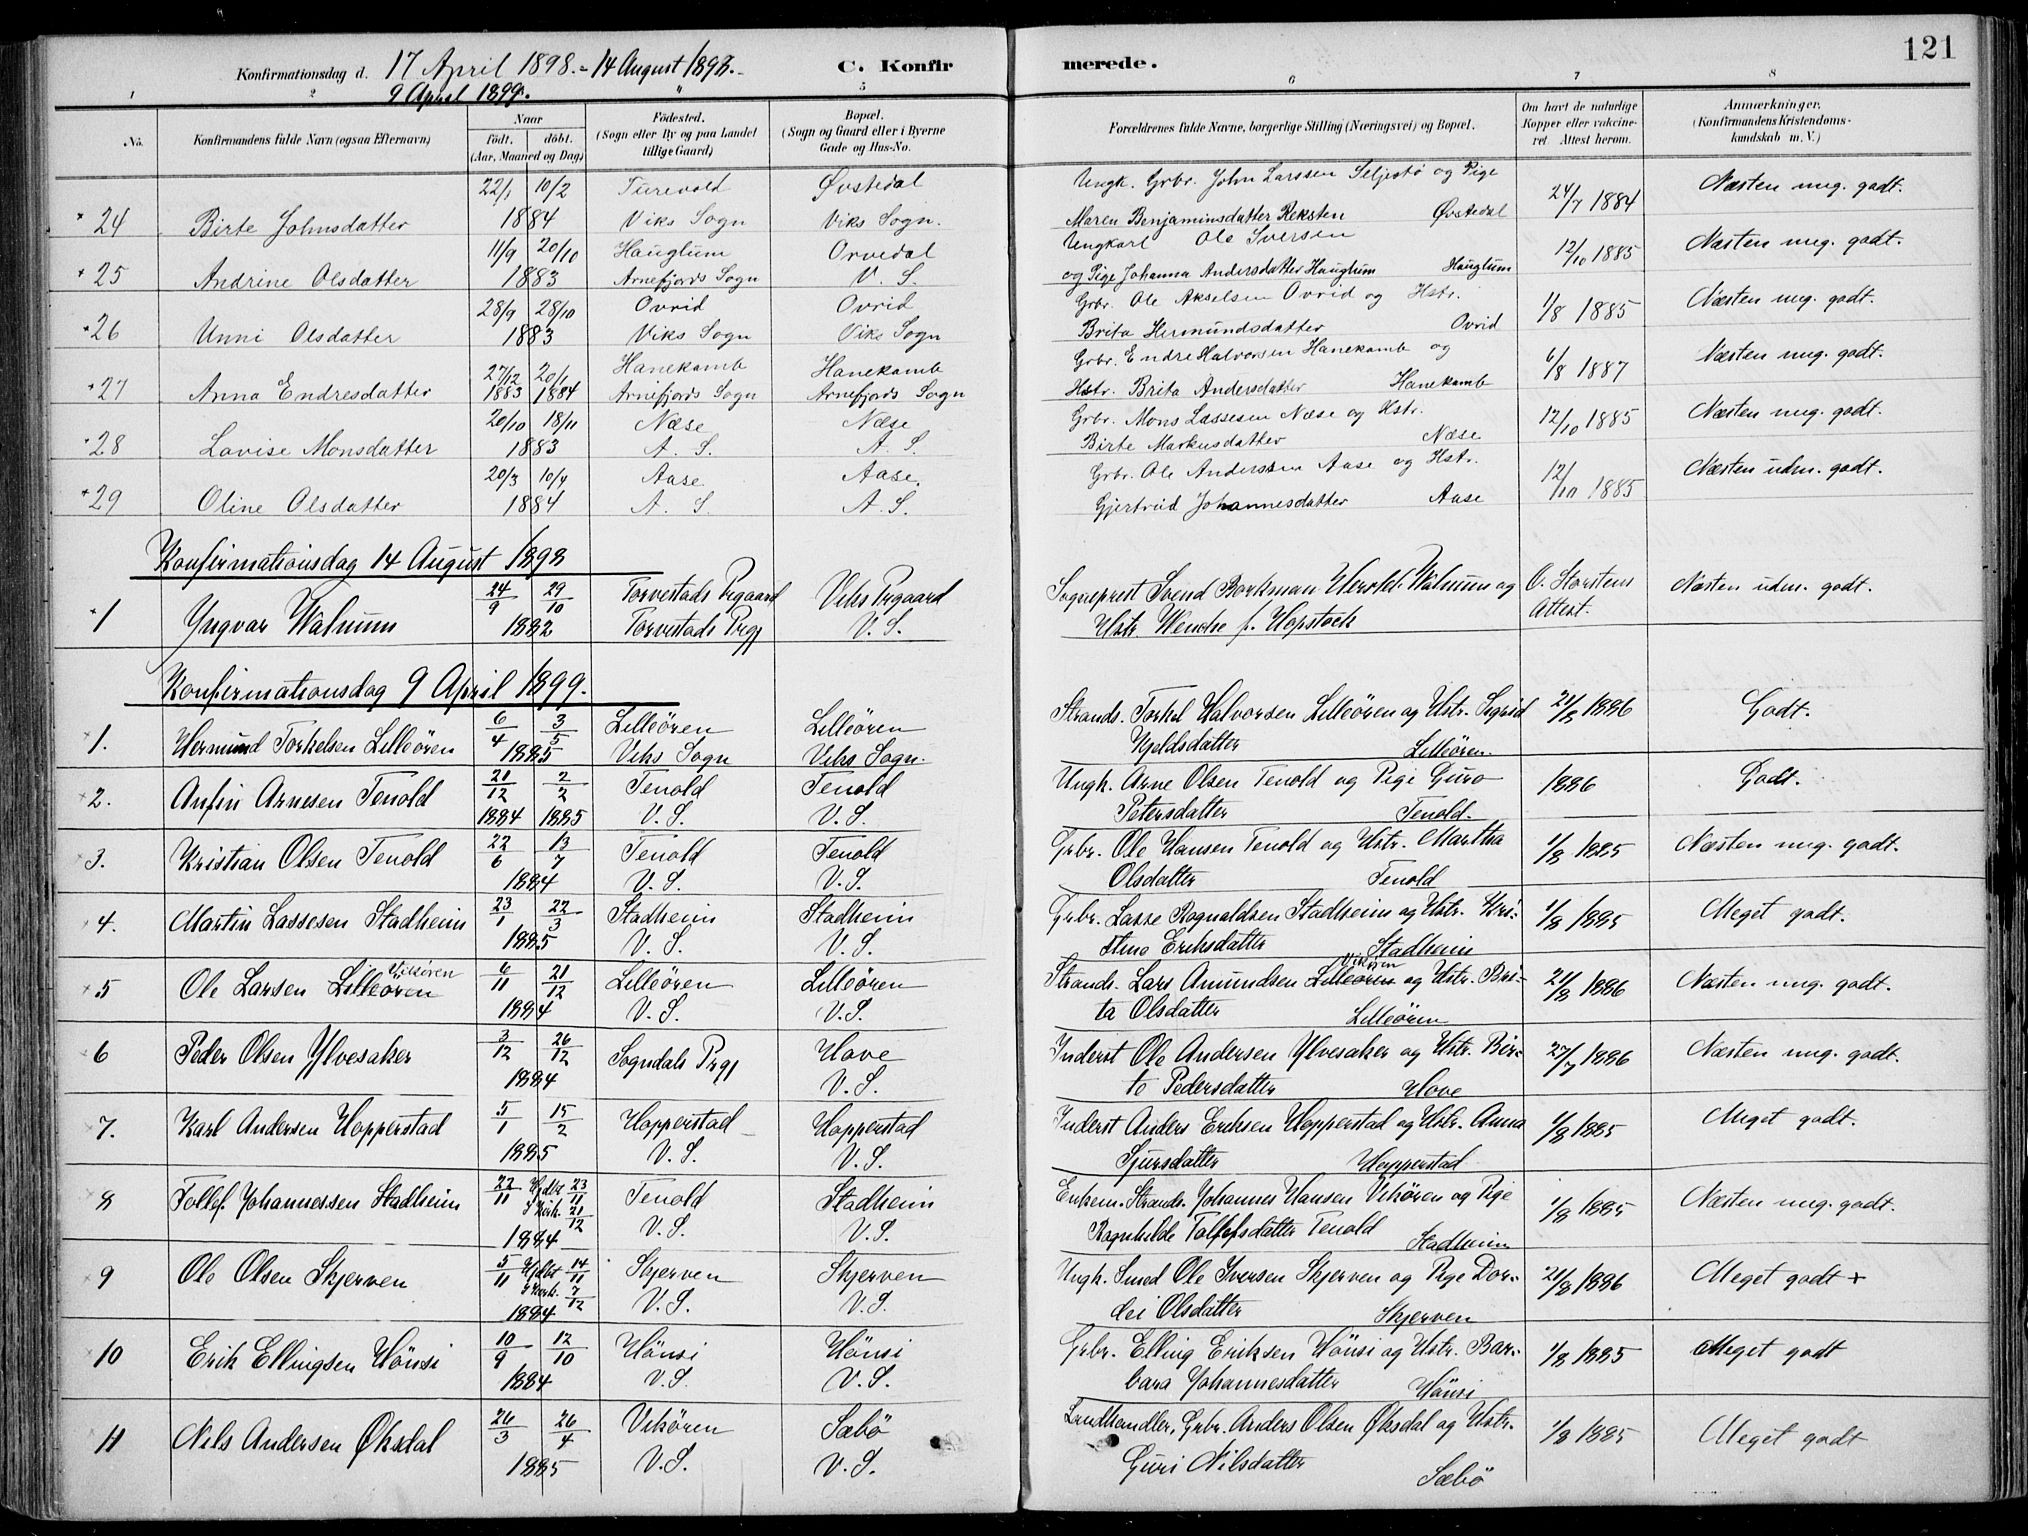 121
Konfirmationsdag d. 17 April 1898. - 14 August 1898. C. Konfirmerede.
9 April 1899.
1 2 4 5 6 7 8
No. Konfirmandens fulde Navn (ogsaa Efternavn) Naar født. døbt. (Aar, Maaned og Dag) Fødested. (Sogn eller By og paa Landet tillige Gaard) Bopæl. (Sogn og Gaard eller i Byerne Gade og Hus-No. Forældrenes fulde Navne, borgerlige Stilling (Næringsvei) og Bopæl. Om havt de naturlige Kopper eller vaccineret Attest herom. Anmærkninger. (Konfirmandens Kristendomskundskab m. V.)
22/1 10/2 Turevold Øvstedal Ungk. Grbr. John Larssen Seljestø og Pige 24/7 1884 Næsten mg. godt.
24 Birte Johnsdatter 1884 Viks Sogn Viks Sogn. Maren Benjaminsdatter Reksten Øvstedal
11/9 20/10 Hauglum Orvedal Ungkarl Ole Iversen 12/10 1885 Næsten mg. godt.
25 Andrine Olsdatter 1883 Arnefjords Sogn V. S. og Pige Johanna Andersdatter Hauglum Hauglum
28/9 28/10 Ovrid Ovrid Grbr. Ole Akselsen Ovrid og Hstr. 1/8 1885 Næsten mg. godt.
26 Unni Olsdatter 1883 Viks Sogn Viks Sogn Brita Hermundsdatter Ovrid
27/12 20/1 Hanekamb Hanekamb Grbr. Endre Halvorsen Hanekamb og 6/8 1887 Næsten mg. godt.
27 Anna Endresdatter 1883 1884 Arnefjords Sogn Arnefjords Sogn Hstr. Brita Andersdatter Hanekamb
20/10 18/11 Næse Næse Grbr. Mons Lassesen Næse og Hstr. 12/10 1885 Næsten mg. godt.
28 Lovise Monsdatter 1883 A. S. A. S. Birte Markusdatter Næse
20/3 10/4 Aase Aase. Grbr. Ole Anderssen Aase og Hstr. 12/10 1885 Næsten udm. godt.
29 Oline Olsdatter 1884 A. S. A. S. Gjertrud Johannesdatter Aase
Konfirmationsdag 14 August 1898
24/9 29/10 Torvestads Prgaard Viks Prgaard Sogneprest Svend Borkman Hersleb Walnum og O. Storstens Attest. Næsten udm. godt.
1 Yngvar Walnum 1882 Torvestads Prgj V. S. Hstr Wenche f. Hopstock
Konfirmationsdag 9 April 1899.
6/4 3/5 Lilleören Lilleören Strands. Torkel Halvorsen Lilleören og Hstr. Sigrid 21/8 1886 Godt.
1. Hermund Torkelsen Lilleören 1885 Viks Sogn Viks Sogn. Kjeldsdatter Lilleören.
21/12 2/2 Tenold Tenold Ungk. Arne Olsen Tenold og Pige Guro 1886 Godt.
2. Anfin Arnesen Tenold 1884 1885 V. S. V. S. Petersdatter Tenold.
22/6 13/7 Tenold Tenold Grbr. Ole Hansen Tenold og Hstr. Martha 1/8 1885 Næsten mg. godt.
3. Kristian Olsen Tenold 1884 V. S. V. S. Olsdatter Tenold
23/1 22/3 Stadheim Stadheim Grbr. Lasse Ragnaldsen Stadheim og Hstr. Kri- 1/8 1885 Meget godt.
4. Martin Lassesen Stadheim 1885 V. S. V. S. stina Eriksdatter Stadheim
Vikören 6/11 21/12 Lilleören Lilleören Strands. Lars Amundsen Lilleören Vikören og Hstr. Bri- 21/8 1886 Næsten mg. godt.
5 Ole Larsen Lilleören 1884 V. S. V. S. ta Olsdatter Lilleören
3/12 26/12 Sogndals Prgj Hove Inderst Ole Andersen Ylvesaker og Hstr. Bir- 27/7 1886 Næsten mg. godt.
6 Peder Olsen Ylvesaker 1884 V. S. te Pedersdatter Hove
5/1 15/2 Hopperstad Hopperstad Inderst Anders Eriksen Hopperstad og Hstr. Anna 1/8 1885 Meget godt.
7. Karl Andersen Hopperstad 1885 V. S. V. S. Sjursdatter Hopperstad
22/11 Hjdbt 23/11 Tenold Stadheim Enkem. Strands. Johannes Hansen Vikören og Pige 1/8 1885 Næsten mg. godt.
8 Tollef Johannessen Stadheim i Kirk. 21/12 1884 V. S. V. S. Ragnhilde Tollefsdatter Tenold Stadheim
5/11 Hjdbt 14/11 Skjerven Skjerven Ungk. Smed Ole Iversen Skjerven og Pige Dor- 21/8 1886 Meget godt +
9 Ole Olsen Skjerven i Kirk. 7/12 1884 V. S. V. S. dei Olsdatter Skjerven
10/9 12/10 Hönsi Hönsi Grbr. Elling Eriksen Hönsi og Hstr. Bar- 1/8 1885 Meget godt
10 Erik Ellingsen Hönsi 1884 V. S. V. S. bara Johannesdatter Hönsi
26/3 26/4 Vikören Sæbö Landhandler, Grbr. Anders Olsen Øksdal og Hstr. 1/8 1885 Meget godt
11 Nils Andersen Øksdal 1885 V. S. V. S. Guri Nilsdatter Sæbö